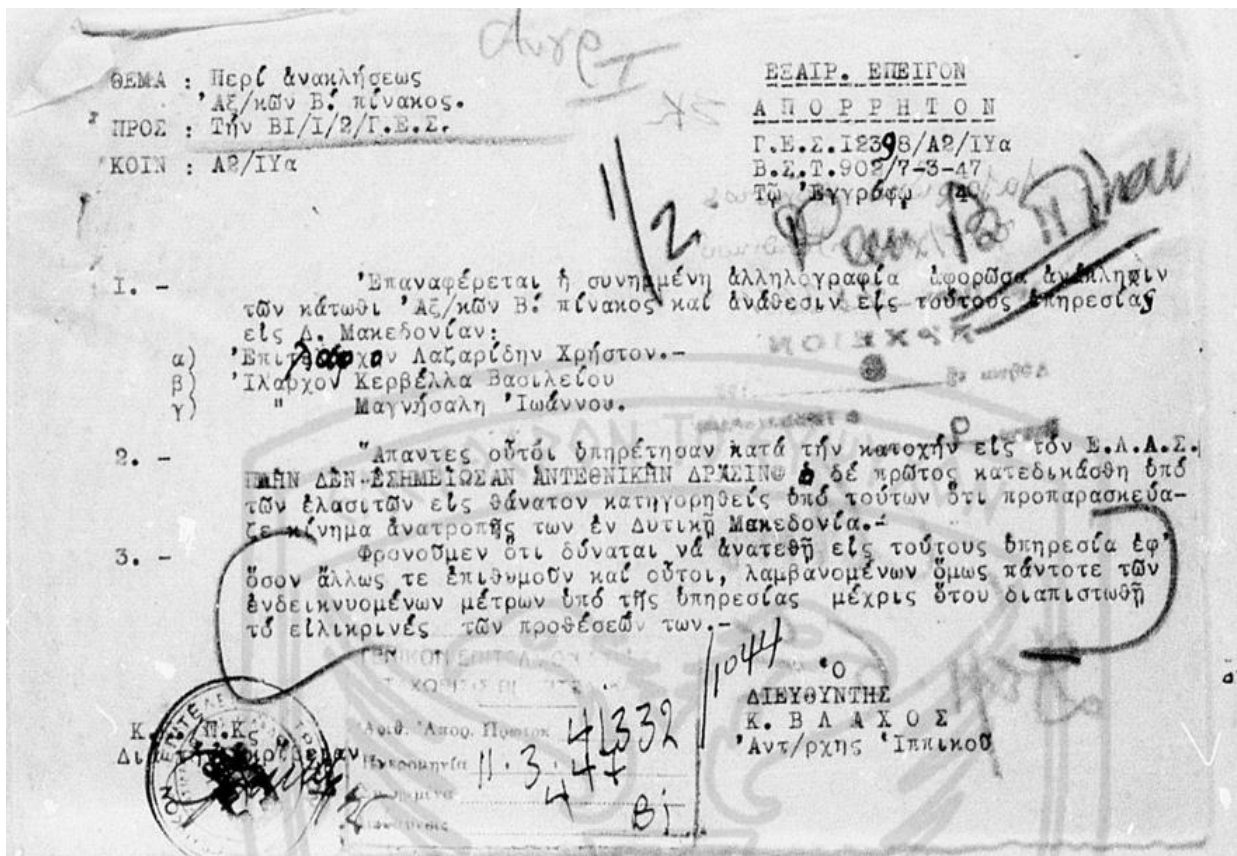 ΘΕΜΑ : Περί ἀνακλήσεως
'Αξ/κῶν Β! πίνακος.
ΠΡΟΣ : Τήν ΒΙ/Ι/2/Γ.Ε.Σ.
ΚΟΙΝ : Α2/ΙΥα
ΕΞΑΙΡ. ΕΠΕΙΓΟΝ
Α Π Ο Ρ Ρ Η Τ Ο Ν
Γ.Ε.Σ.Ι2398/Α2/ΙΥα
Β.Σ.Τ.902/7-3-47
Τῷ 'Εγγράφῳ 4
1/2
Ι. - 'Επαναφέρεται ἡ συνημμένη ἀλληλογραφία ἀφορῶσα ἀνάκλησιν
τῶν κάτωθι 'Αξ/κῶν Β! πίνακος καί ἀνάθεσιν εἰς τούτους ὑπηρεσίας
εἰς Δ. Μακεδονίαν:
α) Λαζαρίδην Χρῆστον.-
β) 'Ιλαρχον Κερβέλλα Βασιλείου
γ) " Μαγνήσαλη 'Ιωάννου.
2. - Ἅπαντες οὗτοί ὑπηρέτησαν κατά τήν κατοχήν εἰς τόν Ε.Λ.Α.Σ.
ΠΛΗΝ ΔΕΝ ἘΣΗΜΕΙΩΣΑΝ ἈΝΤΕΘΝΙΚΗΝ ΔΡΑΣΙΝ ὁ δέ πρῶτος κατεδικάσθη ὑπό
τῶν ἐλασιτῶν εἰς θάνατον κατηγορηθείς ὑπό τούτων ὅτι προπαρασκεύα-
ζε κίνημα ἀνατροπῆς των ἐν Δυτικῇ Μακεδονίᾳ.-
3. - Φρονοῦμεν ὅτι δύναται νά ἀνατεθῇ εἰς τούτους ὑπηρεσία ἐφ'
ὅσον ἄλλως τε ἐπιθυμοῦν καί οὗτοι, λαμβανομένων ὅμως πάντοτε τῶν
ἐνδεικνυομένων μέτρων ὑπό τῆς ὑπηρεσίας μέχρις ὅτου διαπιστωθῇ
τό εἰλικρινές τῶν προθέσεών των.-
1044
'Ο
ΔΙΕΥΘΥΝΤΗΣ
Κ. Β Λ Α Χ Ο Σ
'Αντ/ρχης 'Ιππικοῦ
'Αριθ. 'Απορ. Πρωτοκ 41332
Ἡμερομηνία 11.3.47